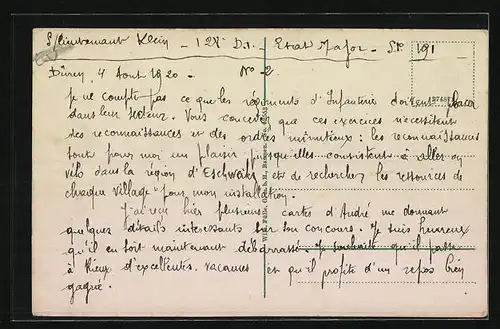 S/Lieutenant Klein - 128e D.I. - Etat Major - S.P. 191
Düren, 4 Aout 1920 - No 2
Je ne compte pas ce que les régiments d'Infanterie doivent
dans leur secteur. Vous concevez que ces exercices nécessitent
des reconnaissances et des ordres minutieux : les reconnaissances
sont pour moi un plaisir puisqu'elles consistent à aller en
vélo dans la région d'Eschweiler et de rechercher les ressources de
chaque village pour mon installation.
J'ai reçu hier plusieurs cartes d'André me donnant
quelques détails intéressants sur son concours. Je suis heureux
qu'il en soit maintenant débarrassé. Je souhaite qu'il passe
à Rieux d'excellentes vacances et qu'il profite d'un repos bien
gagné.